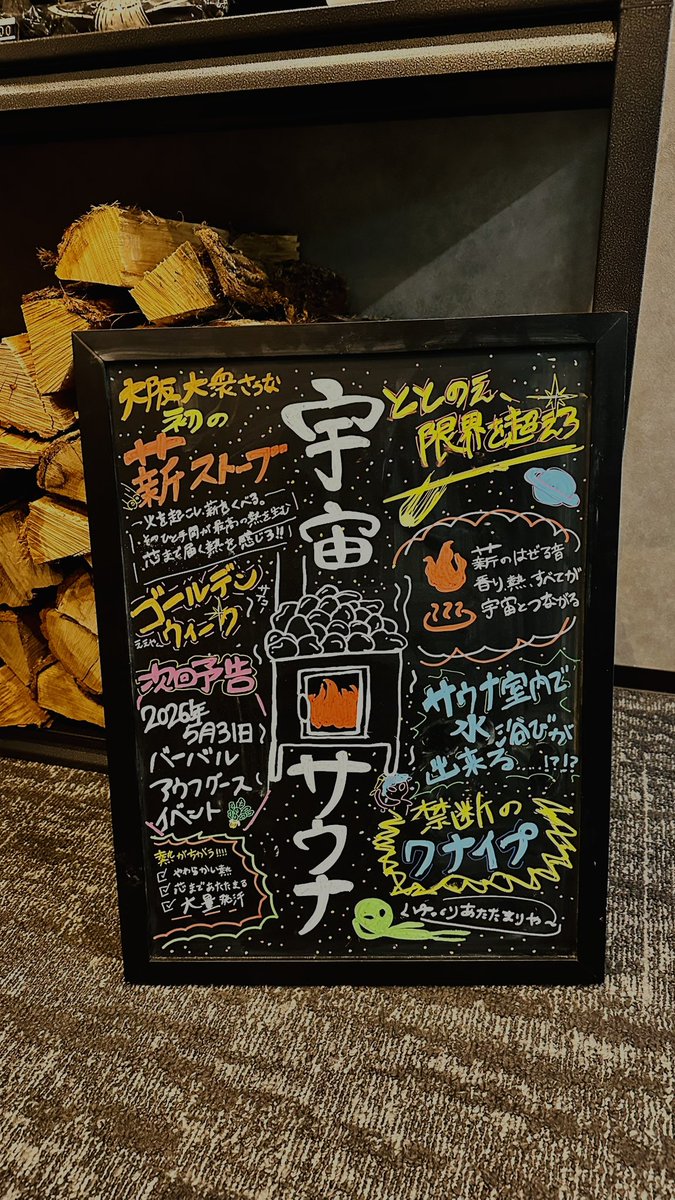 大阪大衆さうな
初の
薪ストーブ
火を起こし、薪をくべる。
そのひと手間が最高の熱を生む
芯まで届く熱を感じろ!!
ゴールデン
ウィーク
ええやん
サウナ
次回予告
2026年
5月31日
バーバル
アウフグース
イベント
熱がちがう!!!!
やわらかい熱
芯まであたたまる
大量発汗
宇宙
サウナ
ととのえ、
限界を超えろ
薪のはぜる音
香り、熱、すべてが
宇宙とつながる
サウナ室内で
水浴びが
出来る!?!?
禁断の
ワナイプ
あたたまりや〜